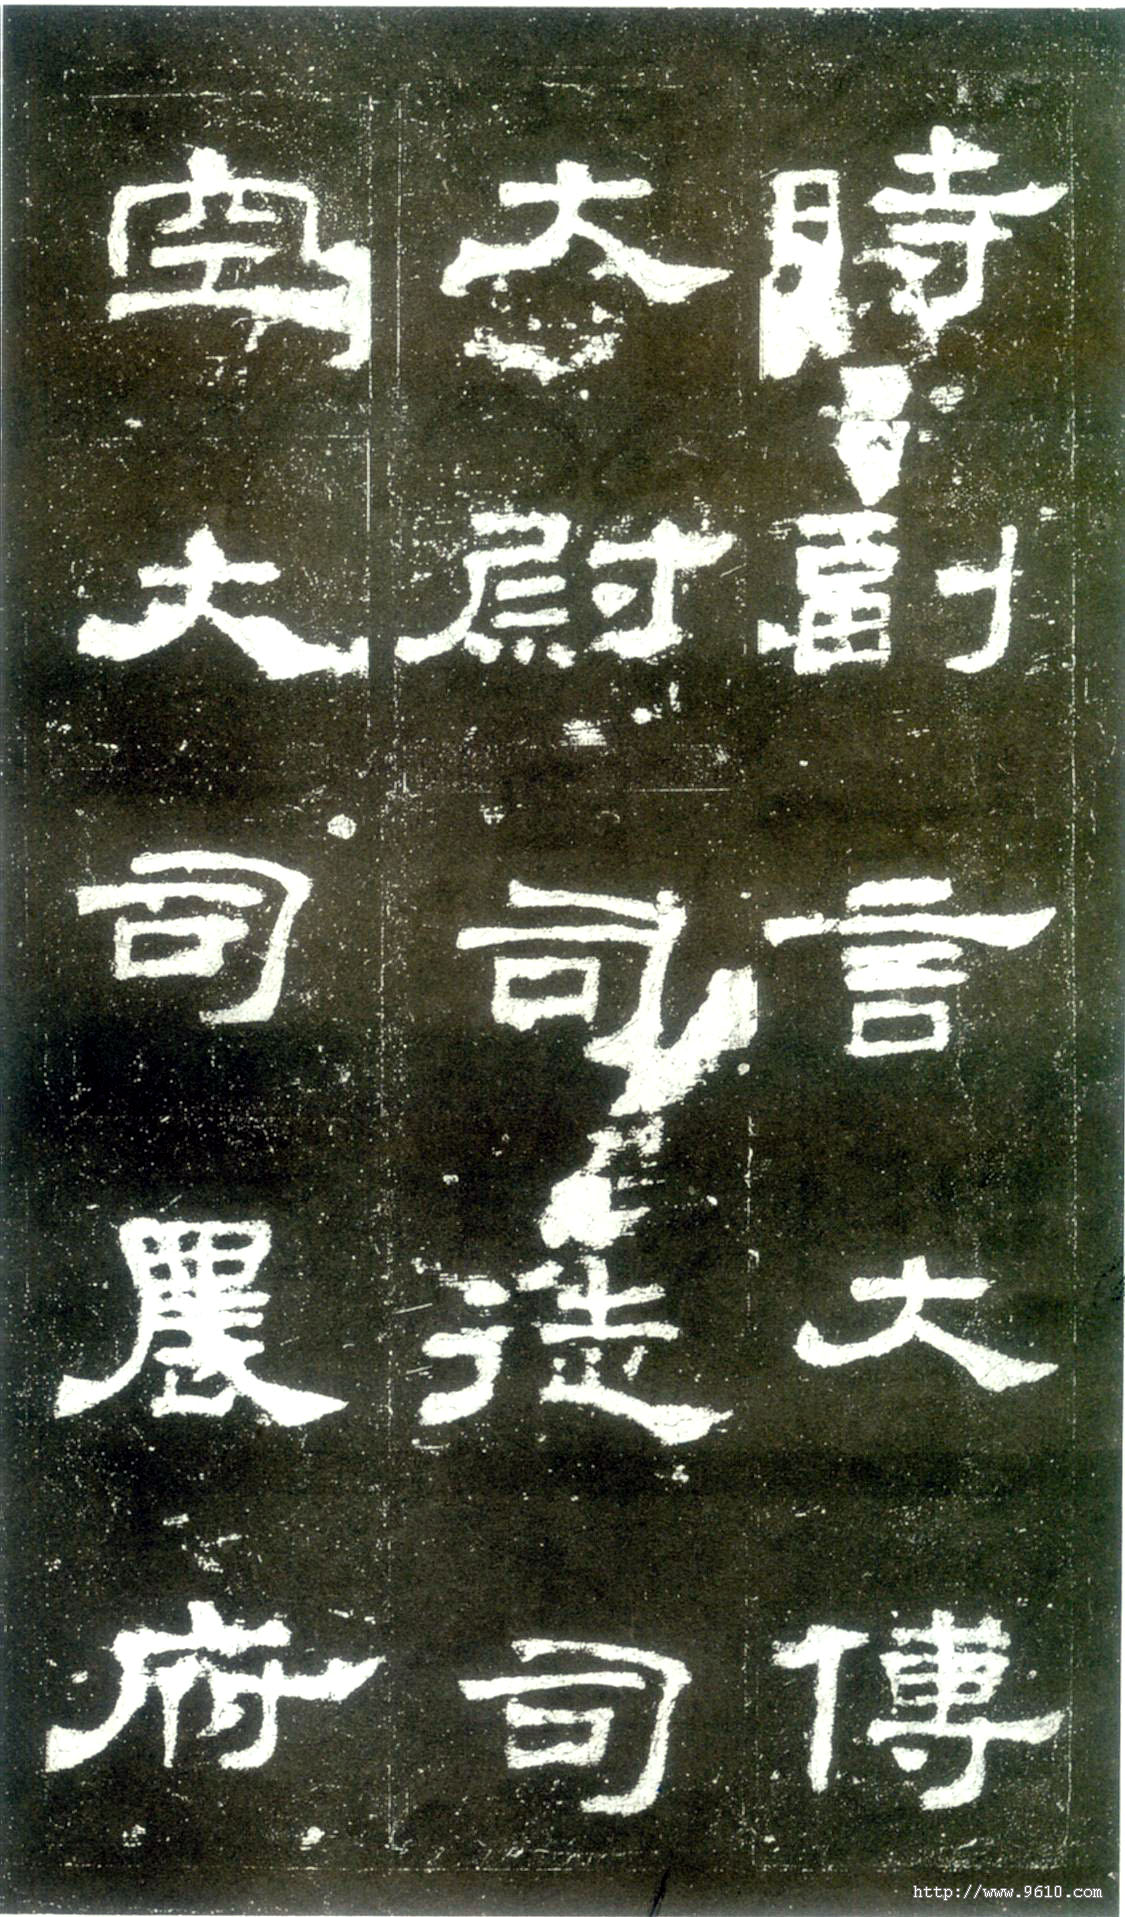 時副言大傅
大尉司徒司
空大司農府
http://www.9610.com